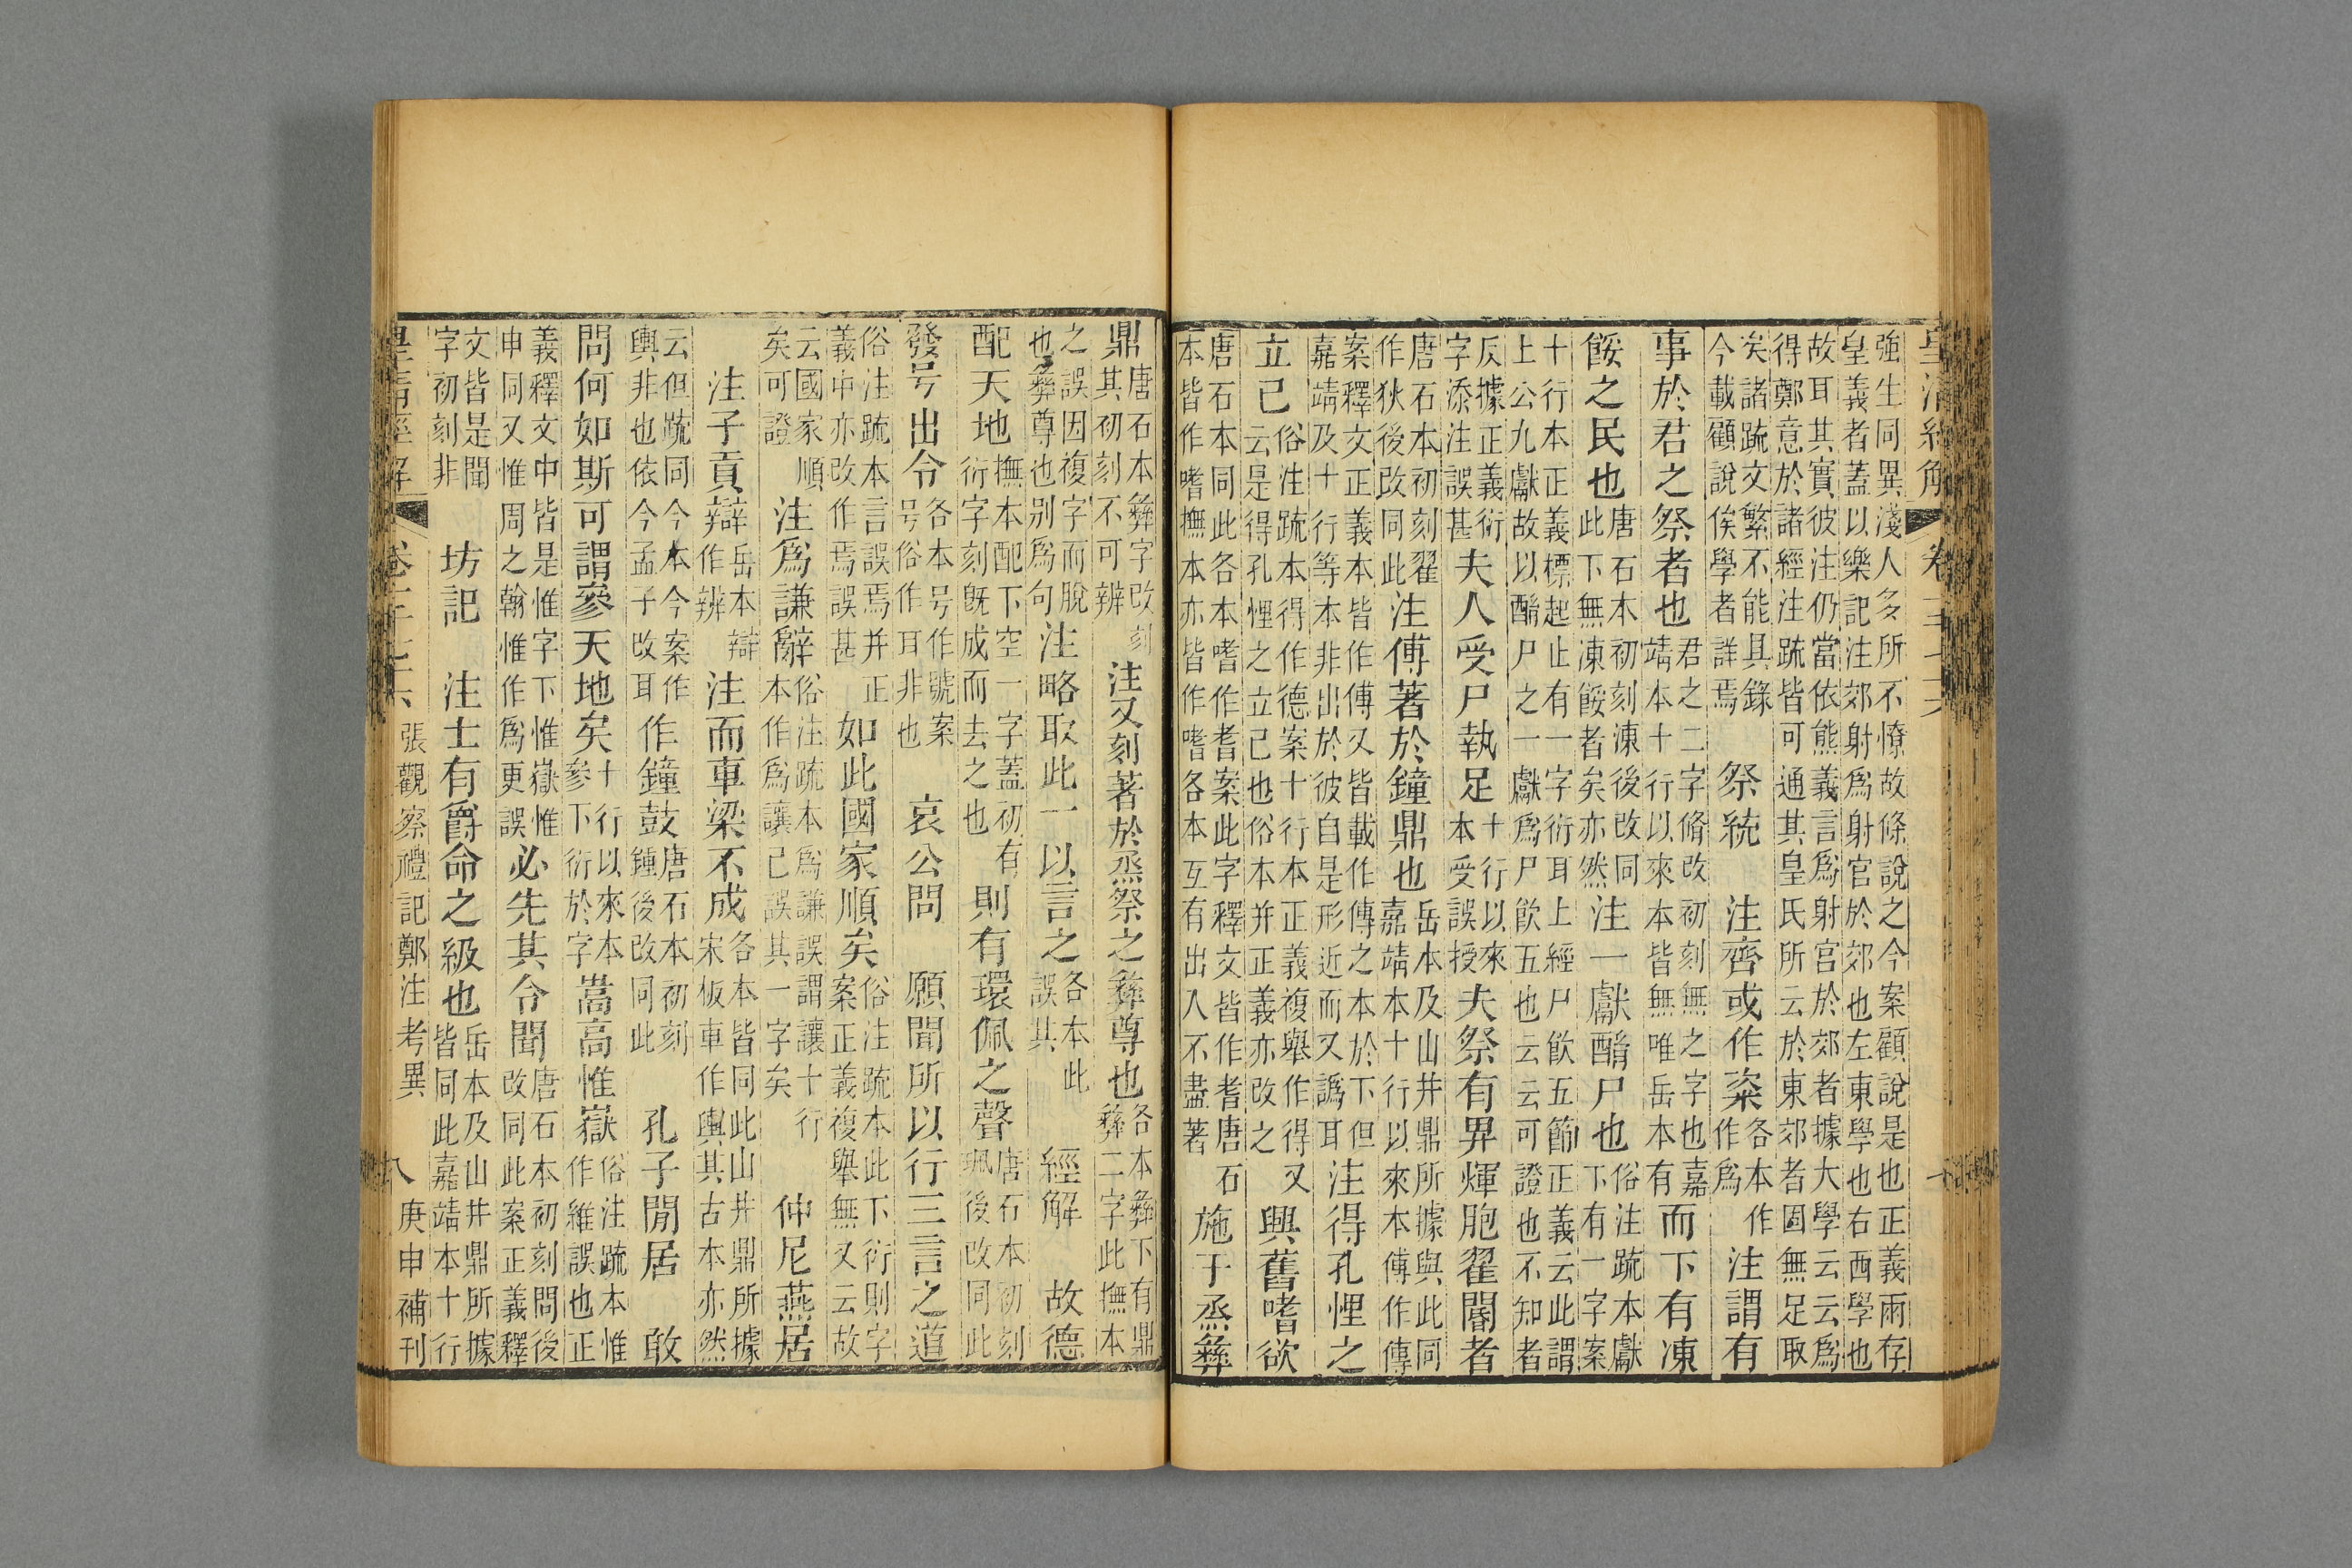 皇清經解 卷一千七十六 十
強生同異淺人多所不憭故條說之今案顧說是也正義兩存
皇義者蓋以樂記注郊射爲射官於郊也左東學也右西學也
故耳其實彼注仍當依熊義言爲射宮於郊者據大學云云爲
得鄭意於諸經注疏皆可通其皇氏所云於東郊者固無足取
矣諸疏文繁不能具錄今載顧說俟學者詳焉 祭統 注齊或作粢 各本作作爲 注謂有
事於君之祭者也 君之二字脩改初刻無之字也嘉靖本十行以來本皆無唯岳本有 而下有凍
餒之民也 唐石本初刻涷後改同此下無凍餒者矣亦然 注一獻酳尸也 俗注疏本獻下有一字案
十行本正義標起止有一字衍耳上經尸飮五節正義云此謂
上公九獻故以酳尸之一獻爲尸飮五也云云可證也不知者
反據正義衍字添注誤甚 夫人受尸執足 十行以來本受誤授 夫祭有畀煇胞翟閽者
唐石本初刻翟作狄後改同此 注傅著於鐘鼎也 岳本及山井鼎所據與此同嘉靖本十行以來本傅作傳
案釋文正義本皆作傅又皆載作傳之本於下但嘉靖及十行等本非出於彼自是形近而又譌耳 注得孔悝之
立己 俗注疏本得作德案十行本正義複舉作得又云是得孔悝之立己也俗本并正義亦改之 興舊嗜欲
唐石本同此各本嗜作耆案此字釋文皆作耆唐石本皆作嗜撫本亦皆作嗜各本互有出入不盡著 施于烝彝
鼎 唐石本彝字改刻其初刻不可辨 注又刻著於烝祭之彝尊也 各本彝下有鼎彝二字此撫本
之誤因複字而脫也彝尊也别爲句 注略取此一以言之 各本此誤其 經解 故德
配天地 撫本配下空一字蓋初有衍字刻旣成而去之也 則有環佩之聲 唐石本初刻珮後改同此
發号出令 各本号作號案号俗作耳非也 哀公問 願聞所以行三言之道
俗注疏本言誤焉并正義中亦改作焉誤甚 如此國家順矣 俗注疏本此下衍則字案正義複舉無又云故
云國家順矣可證 注爲謙辭 俗注疏本爲謙誤謂讓十行本作爲讓己誤其一字矣 仲尼燕居
注子貢辯 岳本辯作辨 注而車梁不成 各本皆同此山井鼎所據宋板車作輿其古本亦然
云但疏同今本今案作輿非也依今孟子改耳 作鐘鼓 唐石本初刻鍾後改同此 孔子閒居 敢
問何如斯可謂參天地矣 十行以來本參下衍於字 嵩高惟嶽 俗注疏本惟作維誤也正
義釋文中皆是惟字下惟嶽惟申同又惟周之翰惟作爲更誤 必先其令聞 唐石本初刻問後改同此案正義釋
文皆是聞字初刻非 坊記 注士有爵命之級也 岳本及山井鼎所據皆同此嘉靖本十行
皇清經解 卷一千七十六 張觀察禮記鄭注考異 八 庚申補刊